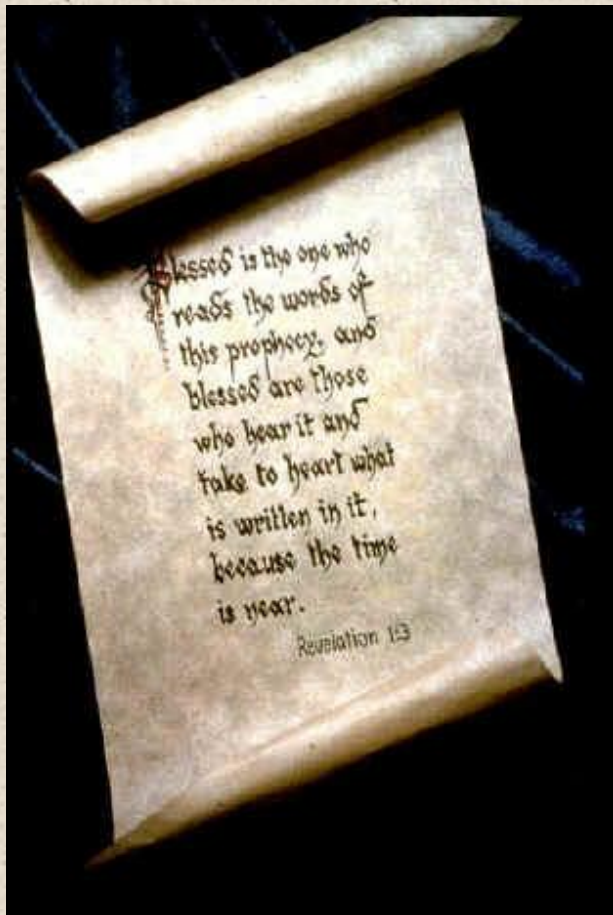 Blessed is the one who
reads the words of
this prophecy, and
blessed are those
who hear it and
take to heart what
is written in it,
because the time
is near.
Revelation 1:3